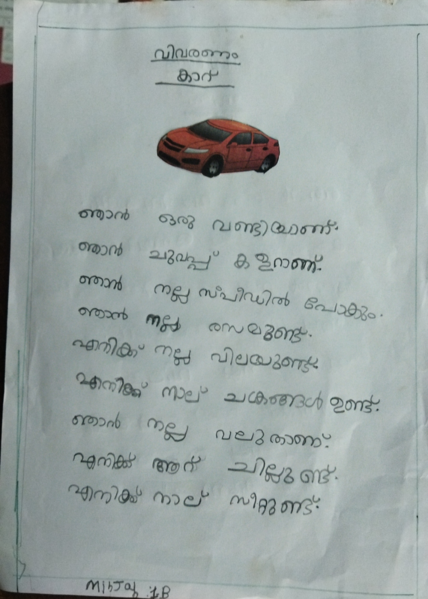 വിവരണം
കാറ്
ഞാൻ ഒരു വണ്ടിയാണ്.
ഞാൻ ചുവപ്പ് കളറാണ്.
ഞാൻ നല്ല സ്പീഡിൽ പോകും.
ഞാൻ നല്ല രസമുണ്ട്.
എനിക്ക് നല്ല വിലയുണ്ട്.
എനിക്ക് നാല് ചക്രങ്ങൾ ഉണ്ട്.
ഞാൻ നല്ല വലുതാണ്.
എനിക്ക് ആറ് ചില്ലുണ്ട്.
എനിക്ക് നാല് സീറ്റുണ്ട്.
1B